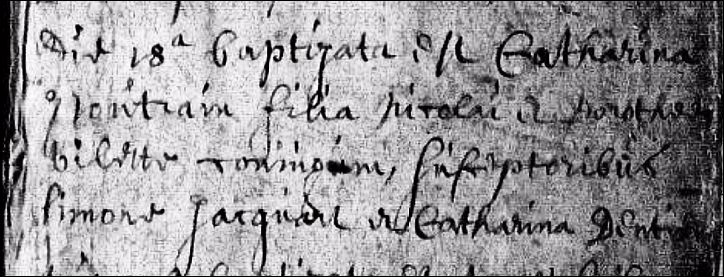 Die 18ª baptizata est Catharina
filia nicolai et
bilette coniugum, susceptoribus
simone Jacquart et Catharina